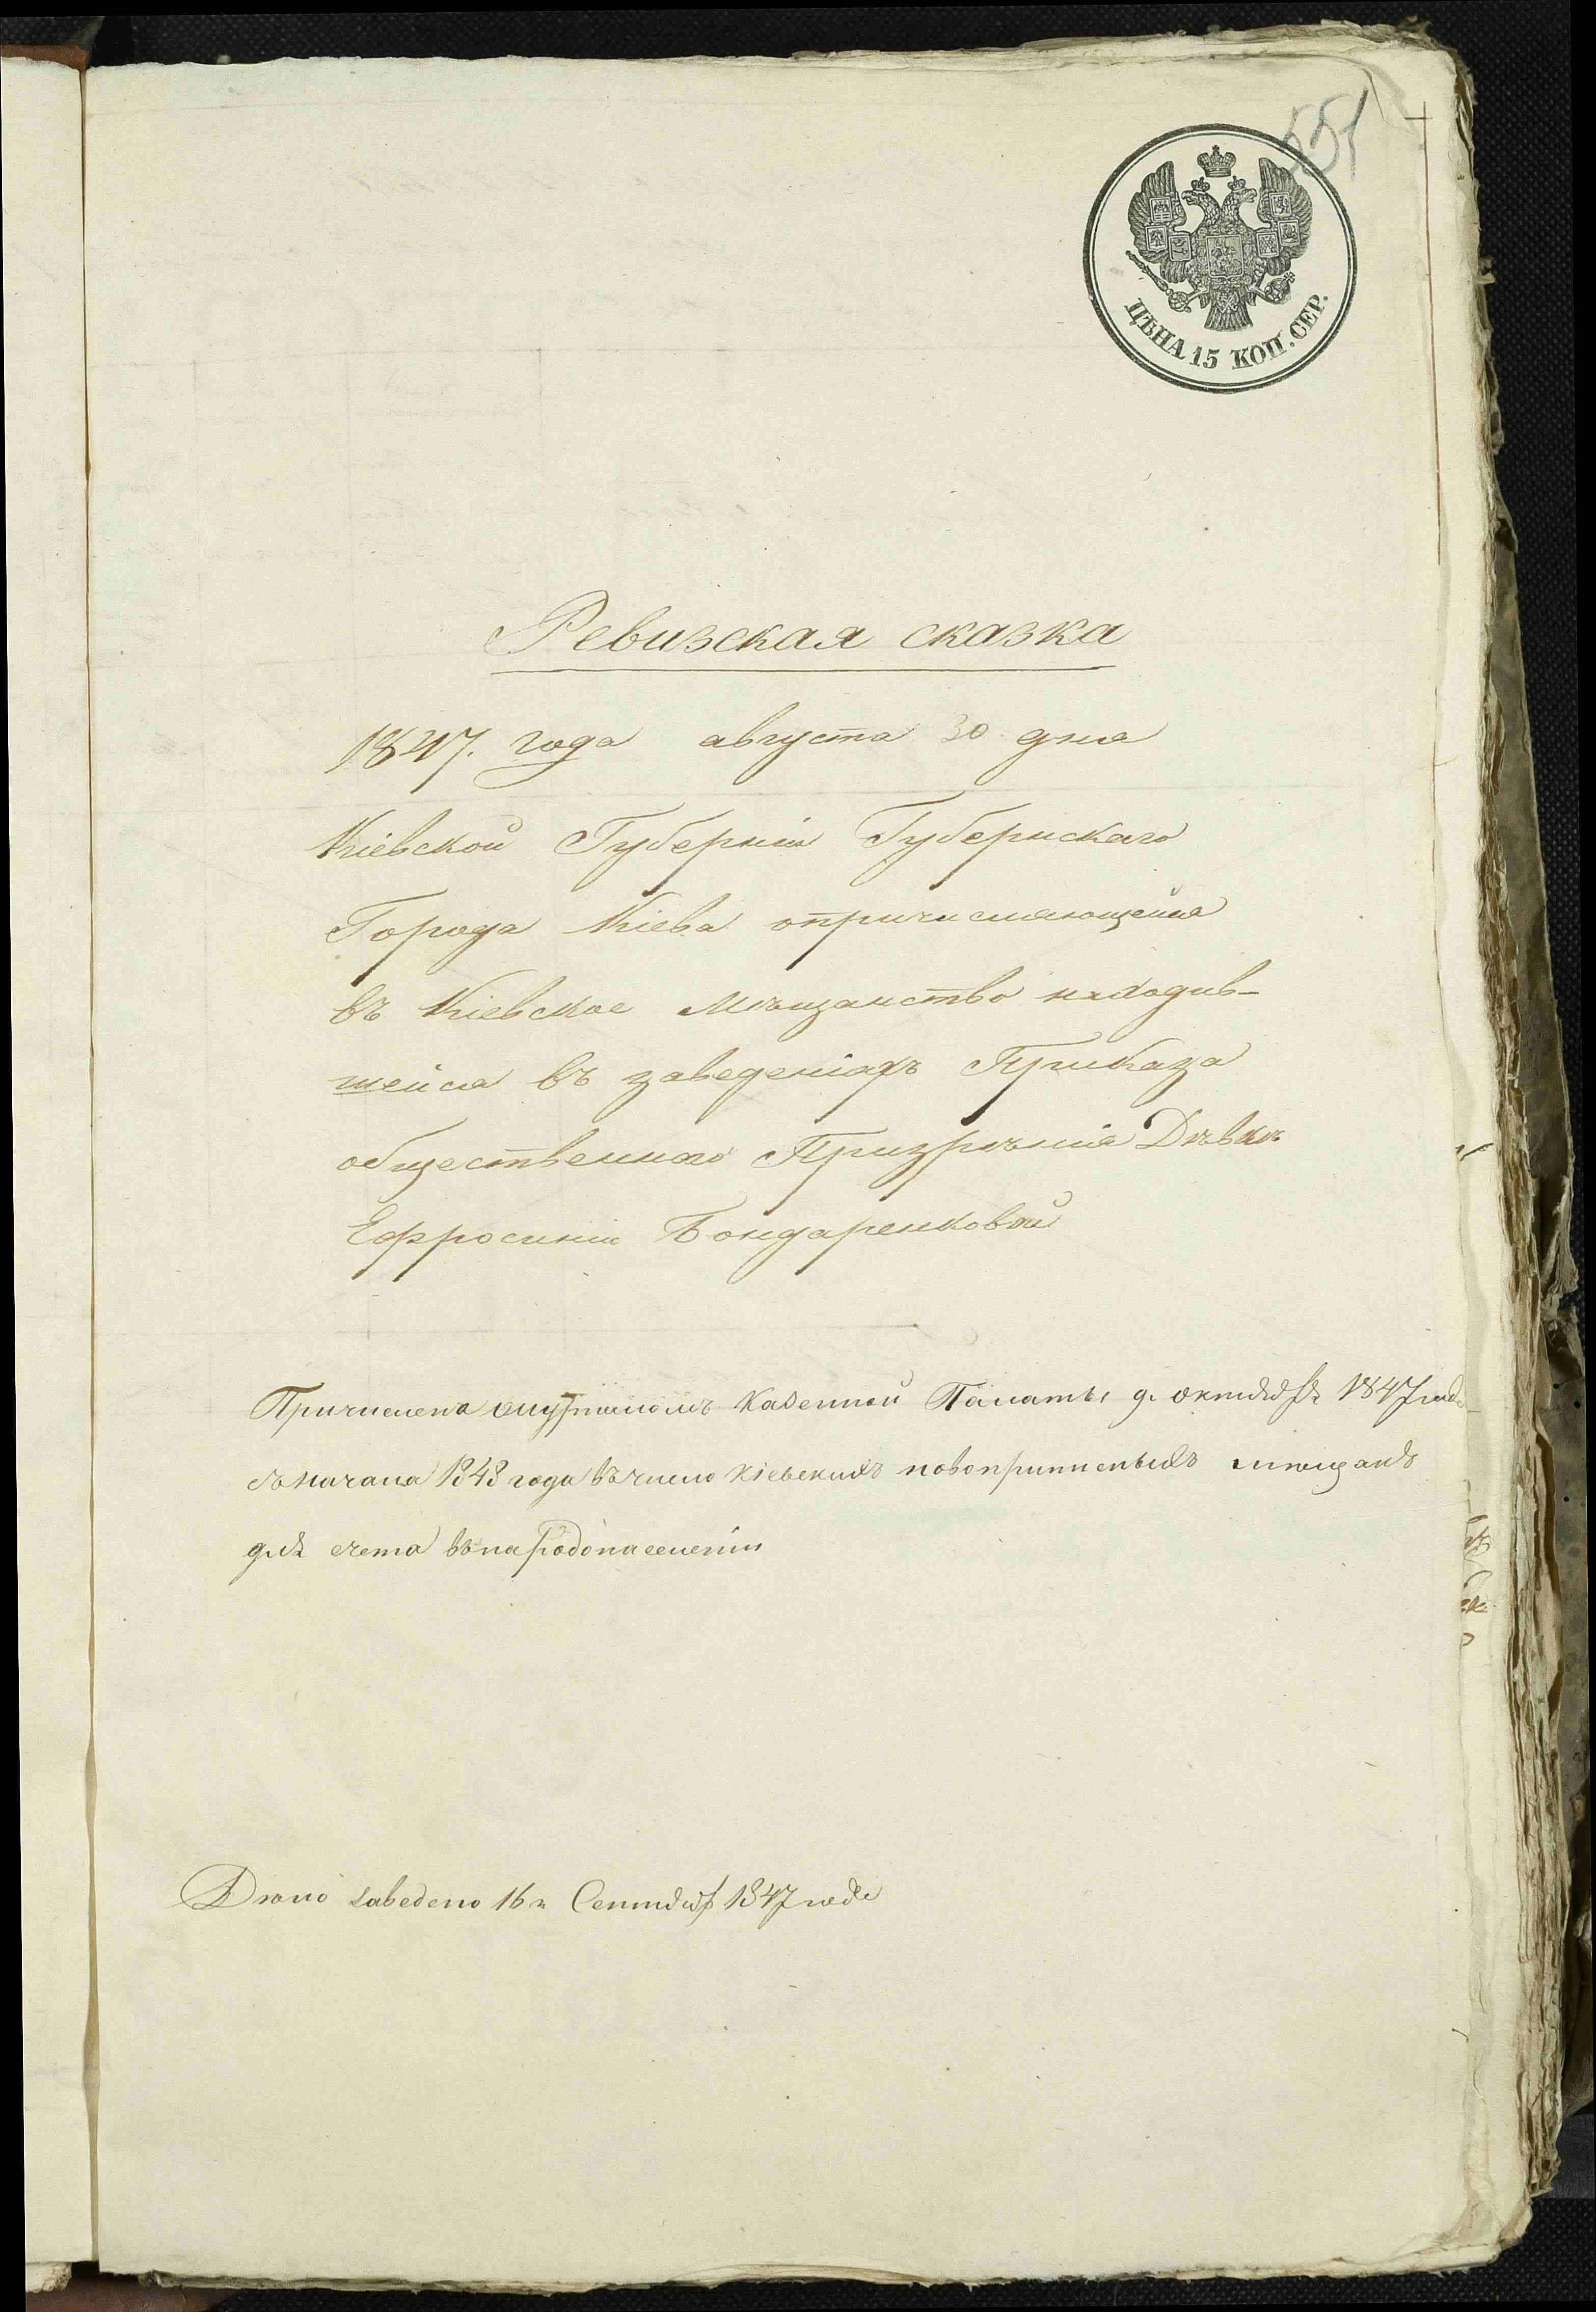 551
ЦѢНА 15 КОП. СЕР.
Ревизская сказка
1847. года августа 30 дня
Кіевской Губерніи Губернскаго
Города Кіева опричисляющейся
въ Кіевское Мѣщанство находив-
шейся въ заведеніяхъ Приказа
общественнаго Призрѣнія Дѣвкѣ
Ефросиніи Бондаренковой
Причислена Казенной Палаты октября 1847 года
съ начала 1848 года въ число Кіевскихъ мѣщанъ
для счета въ народонаселеніи
Дѣло заведено 16 Сентября 1847 года